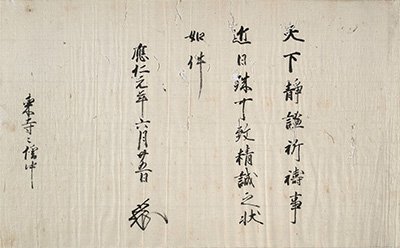 天下靜謐祈禱事
近日殊可致精誠之状
如件
應仁元年六月廿五日
東寺々僧中